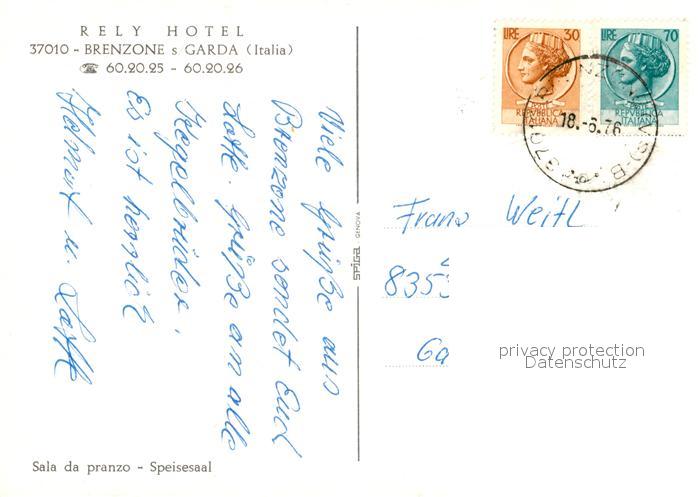 RELY HOTEL
37010 - BRENZONE s. GARDA (Italia)
☎ 60.20.25 - 60.20.26
Viele Grüße aus
Brenzone sendet Euch
Lotte. Grüße an alle
Kegelbrüder.
Es ist herrlich
Helmut u. Lotte
Sala da pranzo - Speisesaal
SPIGA GENOVA
LIRE 30
POSTE
REPVBBLICA
ITALIANA
LIRE 70
POSTE
REPVBBLICA
ITALIANA
18.-6.76
Franz Weitl
835
Ga
privacy protection
Datenschutz